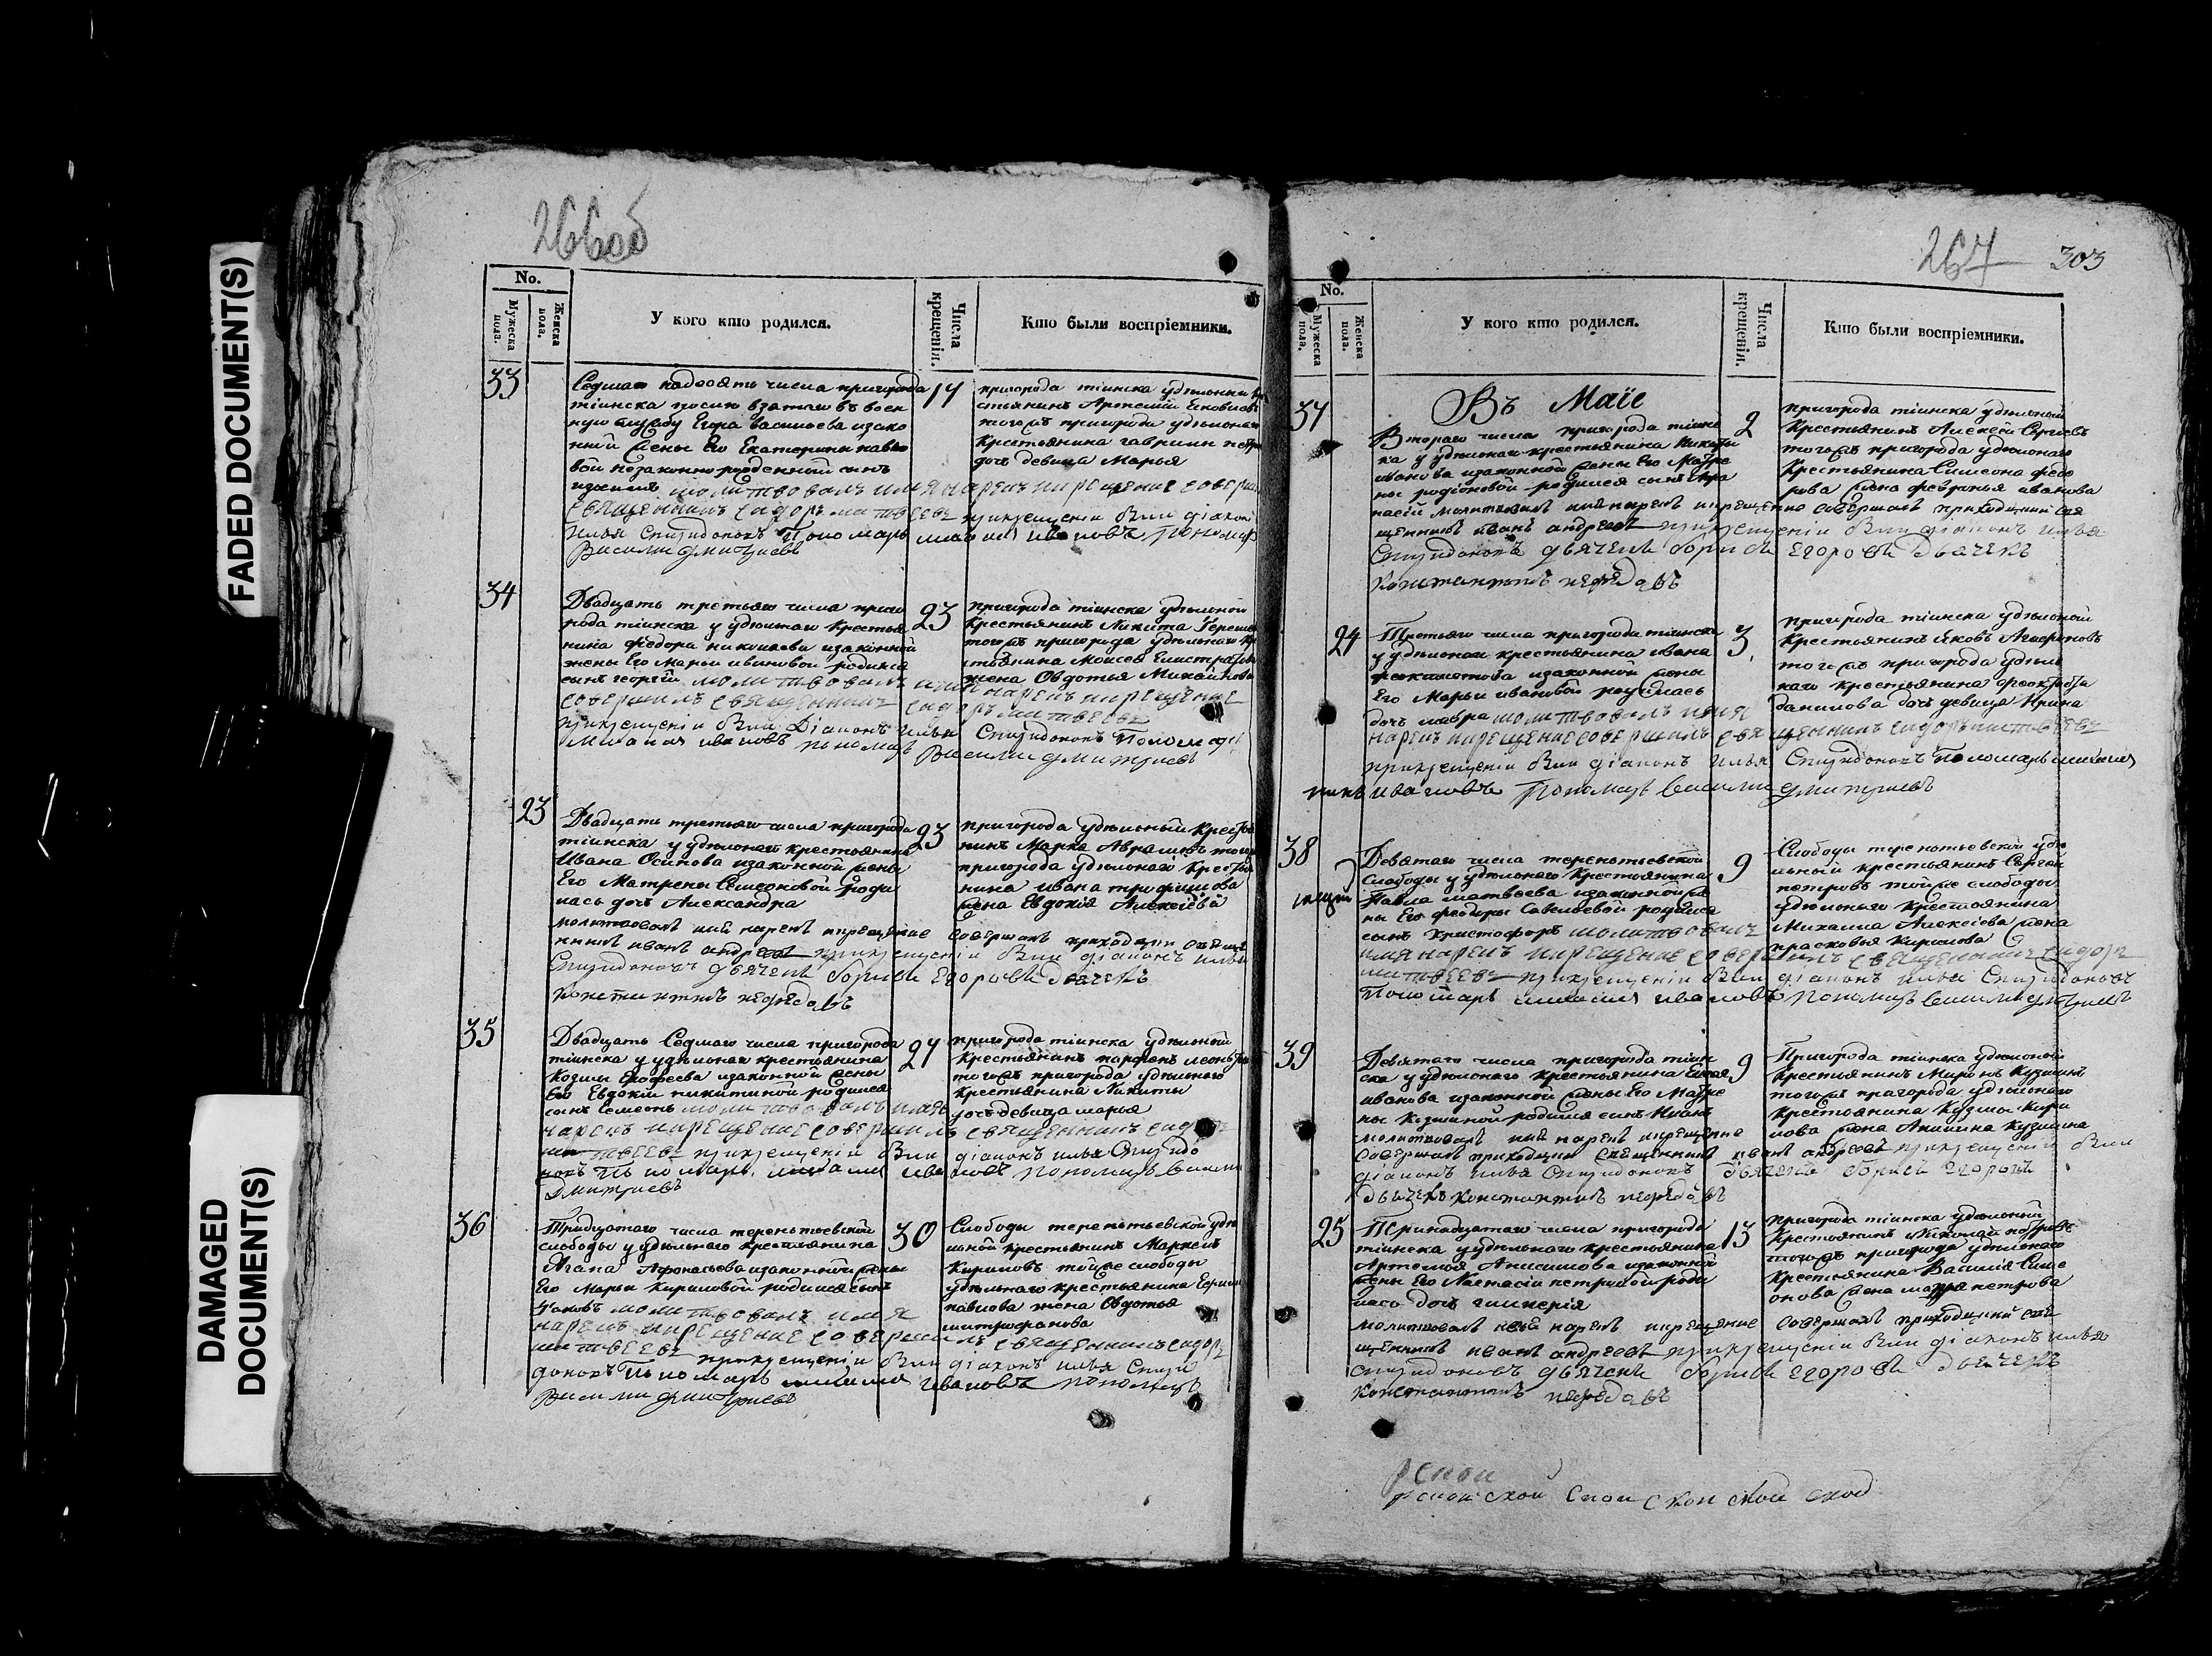 FADED DOCUMENT(S)
DAMAGED
DOCUMENT(S)
266об
No.
Мужеска пола.
Женска пола.
У кого кто родился.
Числа крещенія.
Кто были воспріемники.
33
Седмаго надесять числа пригорода
тіинска
взятаго въ воен
ную службу Егора Васильева изако
нной жены Его Екатерины павло
вой незаконно рожденный сынъ
молитвовалъ имя нарекъ икрещение соверши
священникъ сидоръ матвеевъ прикрещеніи были діаконъ
илья Спиридоновъ Пономарь ивановъ Пономарь
Василий дмитриевъ
17
пригорода тіинска удельный кре
стьянинъ Артемий
тогожъ пригорода удельнаго
крестьянина гаврилы петро
дочь девица Марья
34
Двадцать третьяго числа приго
рода тіинска у удельнаго Крестья
нина Федора николаева изаконной
жены Его Марьи ивановой родился
сынъ георгій молитвовалъ имя нарекъ икрещение
совершилъ священникъ сидоръ матвеевъ
прикрещеніи были Діаконъ илья Спиридоновъ Пономарь
ивановъ пономарь Василий дмитриевъ
23
пригорода тіинска удельной
крестьянинъ Никита
тогожъ пригорода удельнаго кр
стьянина Моисея
жена Овдотья Михайлова
23
Двадцать третьяго числа пригорода
тіинска у удельнаго крестьянина
Ивана Осипова изаконной жены
Его Матрены Семеоновой роди
лась дочь Александра
молитвовалъ имя нарекъ икрещение совершалъ приходский священ
никъ иванъ андреевъ прикрещеніи были діаконъ илья
Спиридоновъ дьячекъ борисъ Егоровъ дьячекъ
константинъ нефедовъ
23
пригорода удельный Крестья
нинъ Марка Аврамовъ тогожъ
пригорода удельнаго Крестья
нина ивана трофимова
жена Евдокія Алексіева
35
Двадцать Седмаго числа пригорода
тіинска у удельнаго крестьянина
Козмы Ерофеева изаконной жены
Его Евдокіи никитиной родился
сынъ Семеонъ молитвовалъ имя
нарекъ икрещение совершилъ священникъ сидоръ
матвеевъ прикрещеніи были діаконъ илья Спиридо
новъ пономарь ивановъ пономарь Василий
Дмитриевъ
27
пригорода тіинска удельной
Крестьянинъ парфенъ
тогожъ пригорода удельнаго
Крестьянина Никиты
дочь девица марья
36
Тридцатаго числа терентьевской
слободы у удельнаго крестьянина
Афонасьева изаконной жены
Его Марьи Кириловой родился сынъ
Яковъ молитвовалъ имя
нарекъ икрещение совершилъ священникъ сидоръ
матвеевъ прикрещеніи были діаконъ илья Спири
доновъ Пономарь ивановъ пономарь
Василий дмитриевъ
30
Слободы терентьевской уде
льной крестьянинъ Маркелъ
Кириловъ тойже слободы
удельнаго крестьянина Ефима
павлова жена Овдотья
митрофанова
267 303
No.
Мужеска пола.
Женска пола.
У кого кто родился.
Числа крещенія.
Кто были воспріемники.
Въ Маіе
37
Втораго числа пригорода тіинс
ка у удельнаго крестьянина Никиты
иванова изаконной жены Его Матре
ны родіоновой родился сынъ Афа
насій молитвовалъ имя нарекъ икрещение совершалъ приходский свя
щенникъ иванъ андреевъ прикрещеніи были діаконъ илья
Спиридоновъ дьячекъ борисъ Егоровъ дьячекъ
константинъ нефедовъ
2
пригорода тіинска удельной
Крестьянинъ Алексей Сергіевъ
тогожъ пригорода удельнаго
Крестьянина Симеона федо
рова жена февронья иванова
24
Третьяго числа пригорода тіинска
у удельнаго крестьянина ивана
феоктистова изаконной жены
Его Марьи ивановой родилась
дочь мавра молитвовалъ имя
нарекъ икрещение совершилъ священникъ сидоръ матвеевъ
прикрещеніи были діаконъ илья Спиридоновъ Пономарь
ивановъ Пономарь Василий дмитриевъ
3
пригорода тіинска удельной
Крестьянинъ Яковъ
тогожъ пригорода удель
наго крестьянина
данилова дочь девица Ирина
38
Девятаго числа терентьевской
Слободы у удельнаго Крестьянина
Павла матвеева изаконной же
ны Его феодоры Савельевой родился
сынъ Христофоръ молитвовалъ
имя нарекъ икрещение совершилъ священникъ сидоръ
матвеевъ прикрещеніи были діаконъ илья Спиридоновъ
Пономарь ивановъ пономарь Василий дмитриевъ
9
Слободы терентьевской уде
льный крестьянинъ Сергей
петровъ тойже слободы
удельнаго Крестьянина
Михаила Алексіева жена
прасковья Кирилова
39
Девятаго числа пригорода тіин
ска у удельнаго крестьянина
иванова изаконной жены Его Матре
ны Козминой родился сынъ Иванъ
молитвовалъ имя нарекъ икрещение
совершалъ приходский священникъ иванъ андреевъ прикрещеніи были
діаконъ илья Спиридоновъ дьячекъ борисъ егоровъ
дьячекъ константинъ нефедовъ
9
Пригорода тіинска удельной
Крестьянинъ Миронъ Кузминъ
тогожъ пригорода удельнаго
Крестьянина Кузмы Кири
лова жена Акилина Кузмина
25
Тринадцатаго числа пригорода
тіинска у удельнаго крестьянина
Артемія Анисимова изаконной
жены Его Настасіи петровой роди
лась дочь гликерія
молитвовалъ имя нарекъ икрещение совершалъ приходский свя
щенникъ иванъ андреевъ прикрещеніи были діаконъ илья
спиридоновъ дьячекъ борисъ егоровъ дьячекъ
константинъ нефедовъ
13
пригорода тіинска удельной
Крестьянинъ Николай петровъ
тогожъ пригорода удельнаго
Крестьянина Василія Симе
онова жена петрова